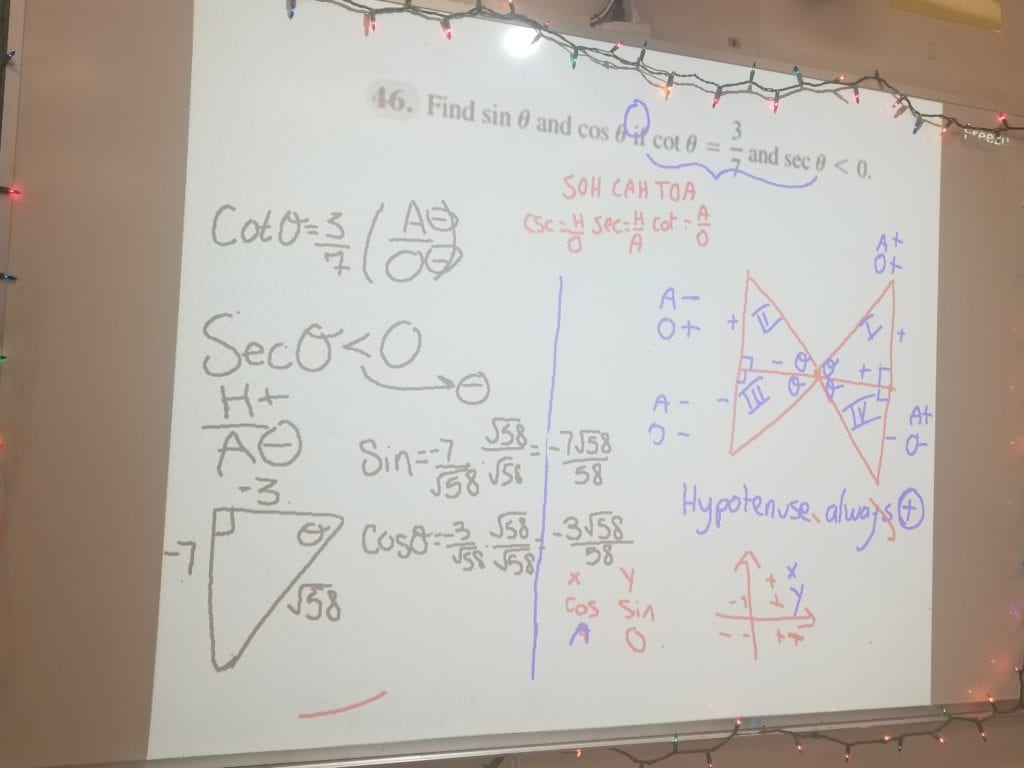 46. Find sin θ and cos θ if cot θ = 3/7 and sec θ < 0.
Freeze
SOH CAH TOA
Csc = H/O Sec = H/A Cot = A/O
Cot θ = 3/7 (A⊖/O⊖)
Sec θ < 0 → ⊖
H+/A⊖
Sin = -7/√58 · √58/√58 = -7√58/58
Cos θ = -3/√58 · √58/√58 = -3√58/58
-3
θ
-7
√58
A+
O+
A -
O +
+ II I +
- θ θ +
A -
O -
- III θ θ IV -
A+
O-
Hypotenuse always ⊕
X Y
Cos Sin
A O
+ X
- + + Y
- - + -